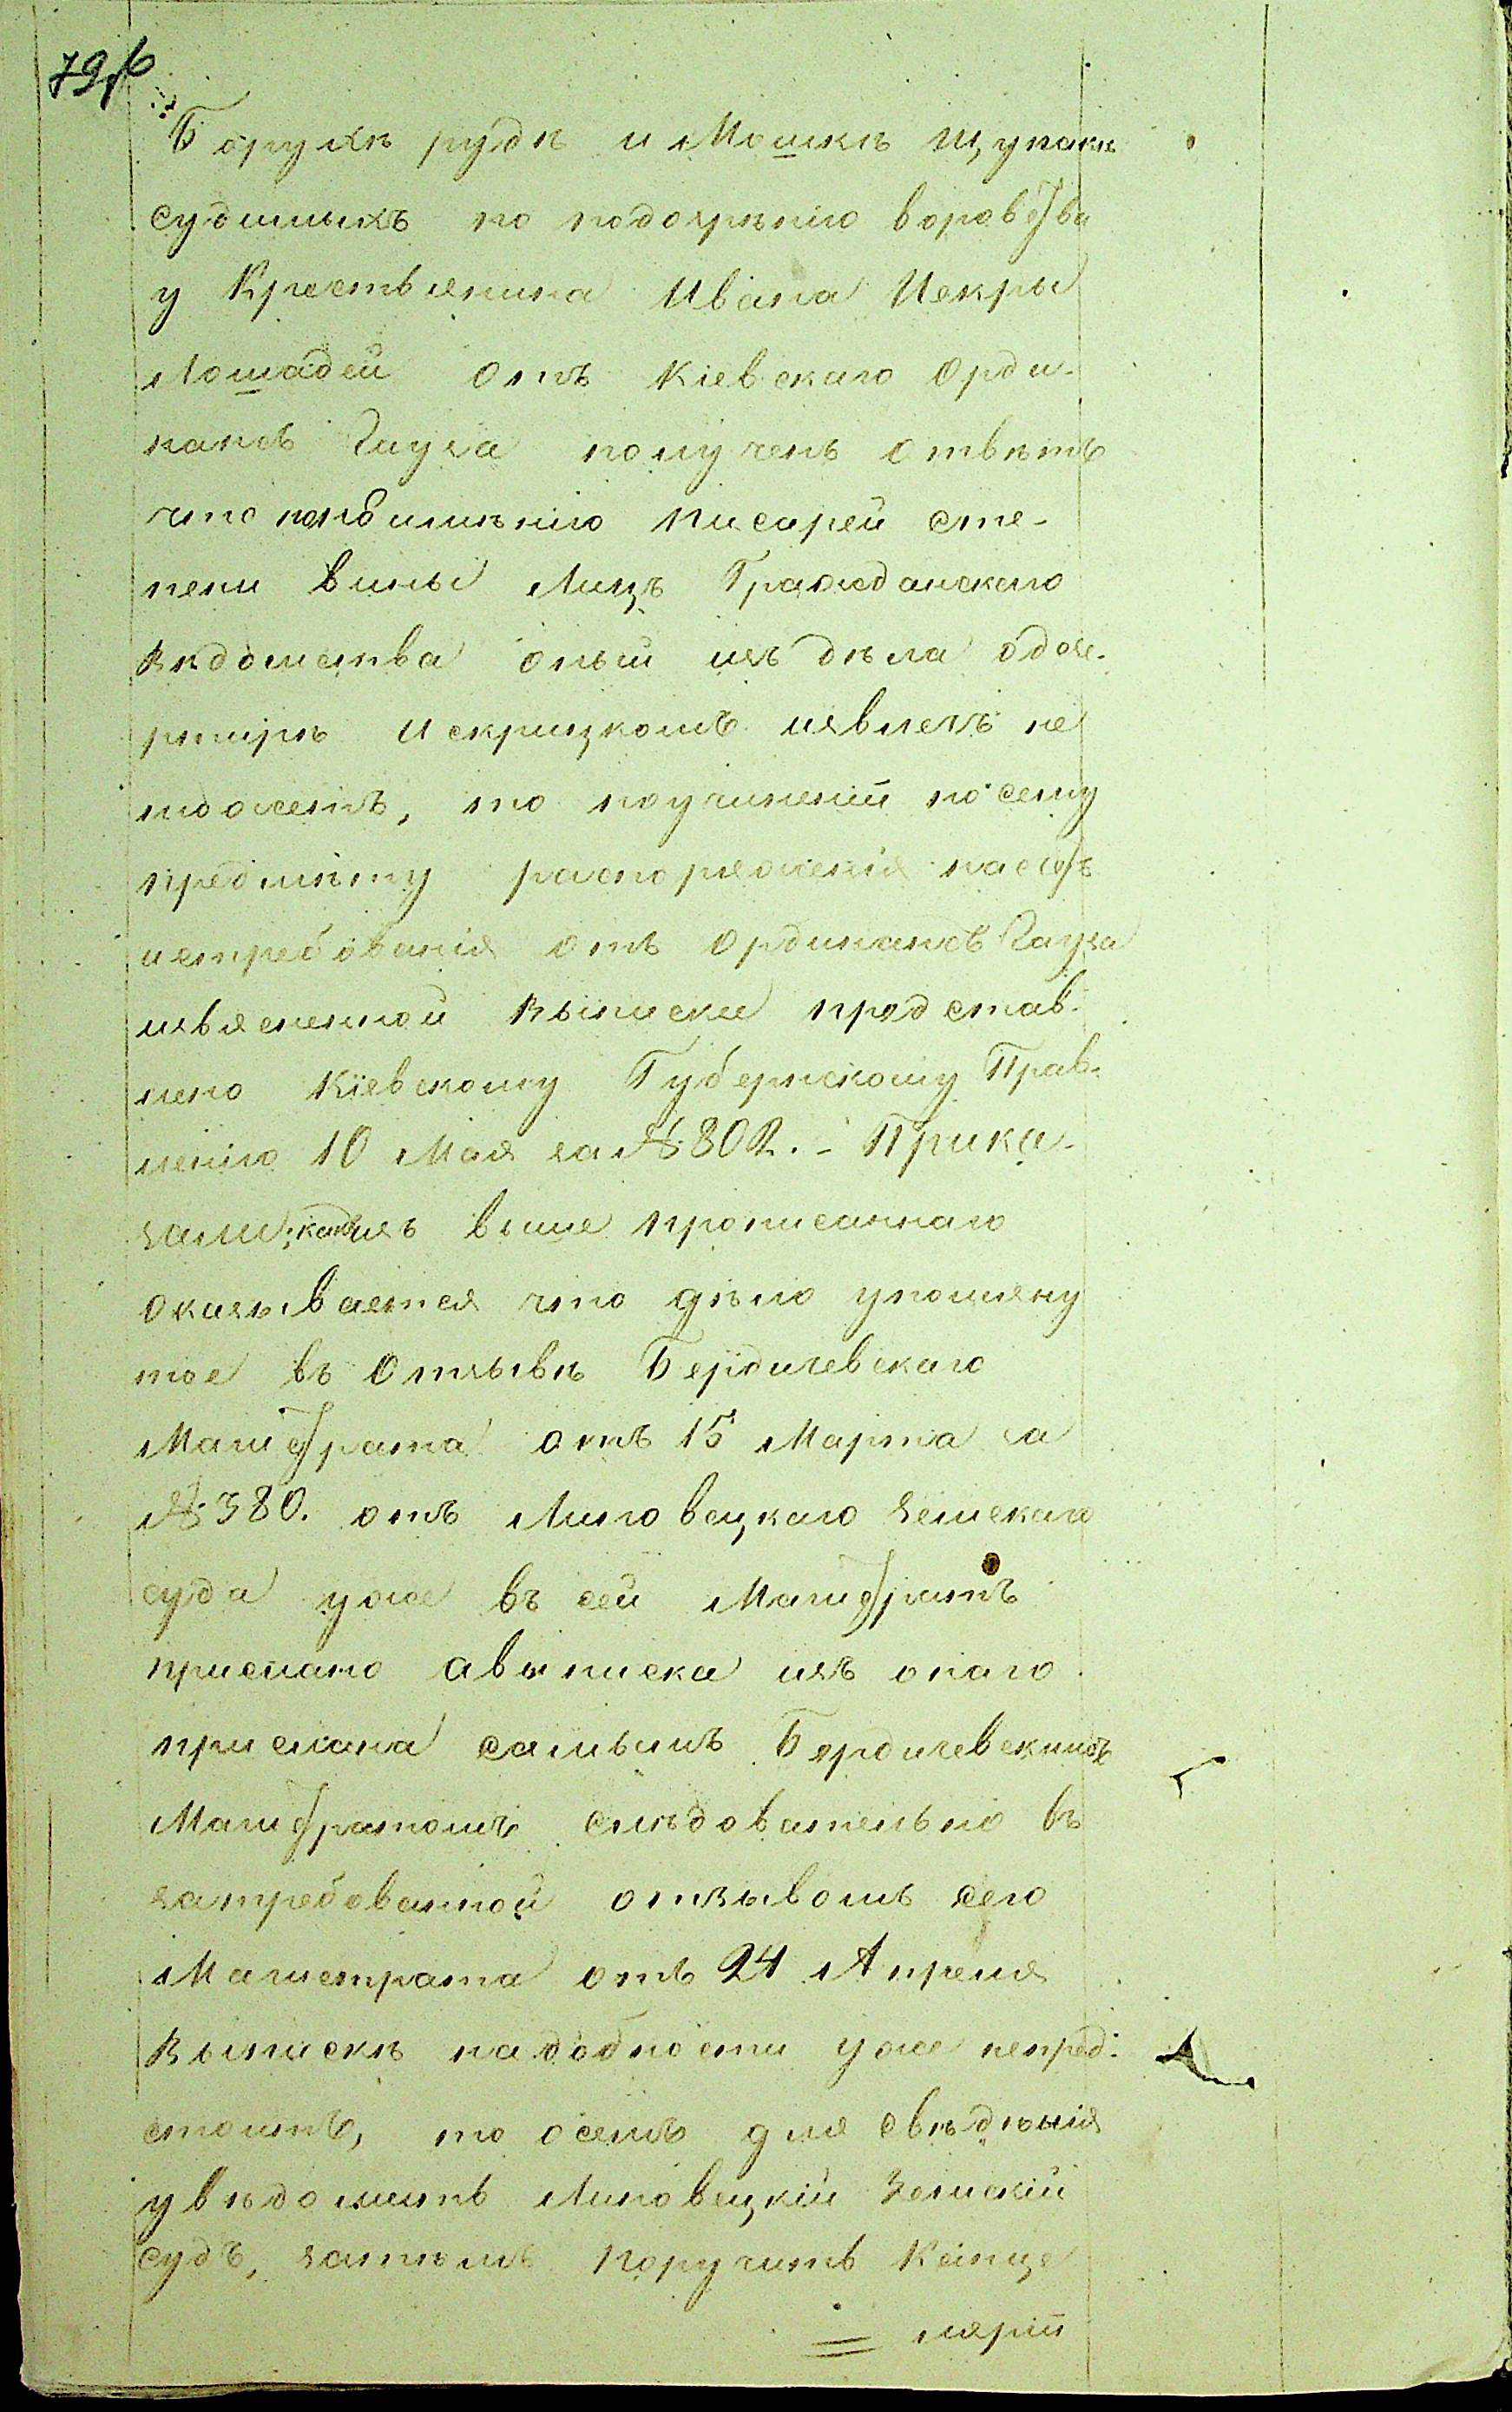 796
Борухѣ рудѣ и Мошкѣ Щупакѣ
судимыхъ по подозрѣнію воровства
у Крестьянина Ивана Искры
Лошадей отъ Кіевскаго Орди-
нансъ Гауза полученъ отвѣтъ
что по неимѣнію писарей сте-
пени вины Лицъ Гражданскаго
вѣдомства оный изъ дѣла о дез-
ртирѣ Искрицкомъ извлечь не
можетъ, то поучиненіи по сему
предмѣту распоряженія насчетъ
истребованія отъ Ординансъ Гауза
изъясненной выписки представ-
лено Кіевскому Губернскому Прав-
ленію 10 Мая за № 802. - Прика-
зали: какъ изъ выше прописаннаго
оказывается что дѣло упомяну
тое въ отзывѣ Бердичевскаго
Магистрата отъ 15 Марта за
№ 380. отъ Липовецкаго земскаго
суда уже въ сей Магистратъ
прислано авыписка изъ онаго
прислана самымъ Бердичевскимъ
Магистратомъ слѣдовательно въ
затребованной отзывомъ сего
Магистрата отъ 24 Апреля
выпискѣ надобности уже непред-
стоитъ, то осемъ для свѣдѣнія
увѣдомить Липовецкій Земскій
судъ, затѣмъ поручить Канце
ляріи